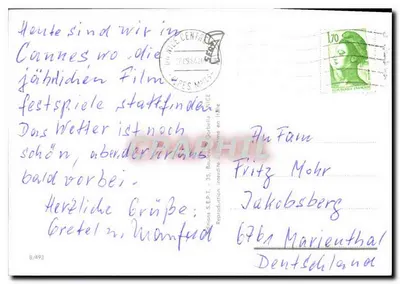 Heute sind wir in
Cannes wo die
jährlichen Film
festspiele stattfinden
Das Wetter ist noch
schön, aber der Urlaub
bald vorbei.
Herzliche Grüße:
Gretel u. Manfred
An Fam
Fritz Mohr
Jakobsberg
6761 Marienthal
Deutschland
1,70
CANNES CENTRE